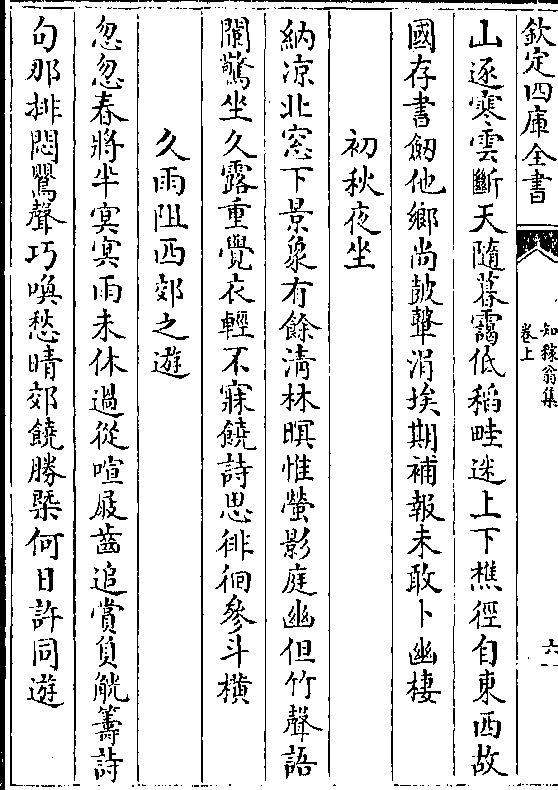 欽定四庫全書
知稼翁集
卷上
六
山逐寒雲斷天隨暮靄低稻畦迷上下樵徑自東西故
國存書劒他鄉尚鼓鼙涓埃期補報未敢卜幽棲
初秋夜坐
納凉北窓下景象有餘清林暝惟螢影庭幽但竹聲語
闌驚坐久露重覺衣輕不寐饒詩思徘徊參斗橫
久雨阻西郊之遊
忽忽春將半㝠㝠雨未休過從喧屐齒追賞負觥籌詩
句那排悶鸎聲巧喚愁晴郊饒勝槩何日許同遊